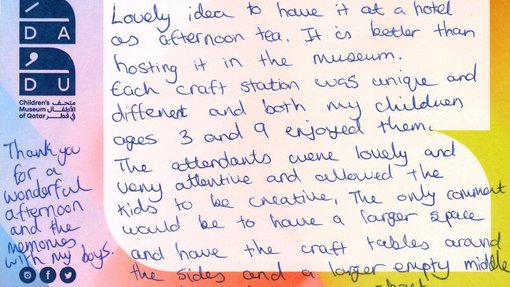 DADU
Children's
Museum
of Qatar
متحف
الأطفال
في قطر
Lovely idea to have it at a hotel
as afternoon tea. It is better than
hosting it in the museum.
Each craft station was unique and
different and both my children
ages 3 and 9 enjoyed them.
The attendants were lovely and
very attentive and allowed the
kids to be creative. The only comment
would be to have a larger space
and have the craft tables around
the sides and a larger empty middle
Thank you
for a
wonderful
afternoon
and the
memories
with my boys.